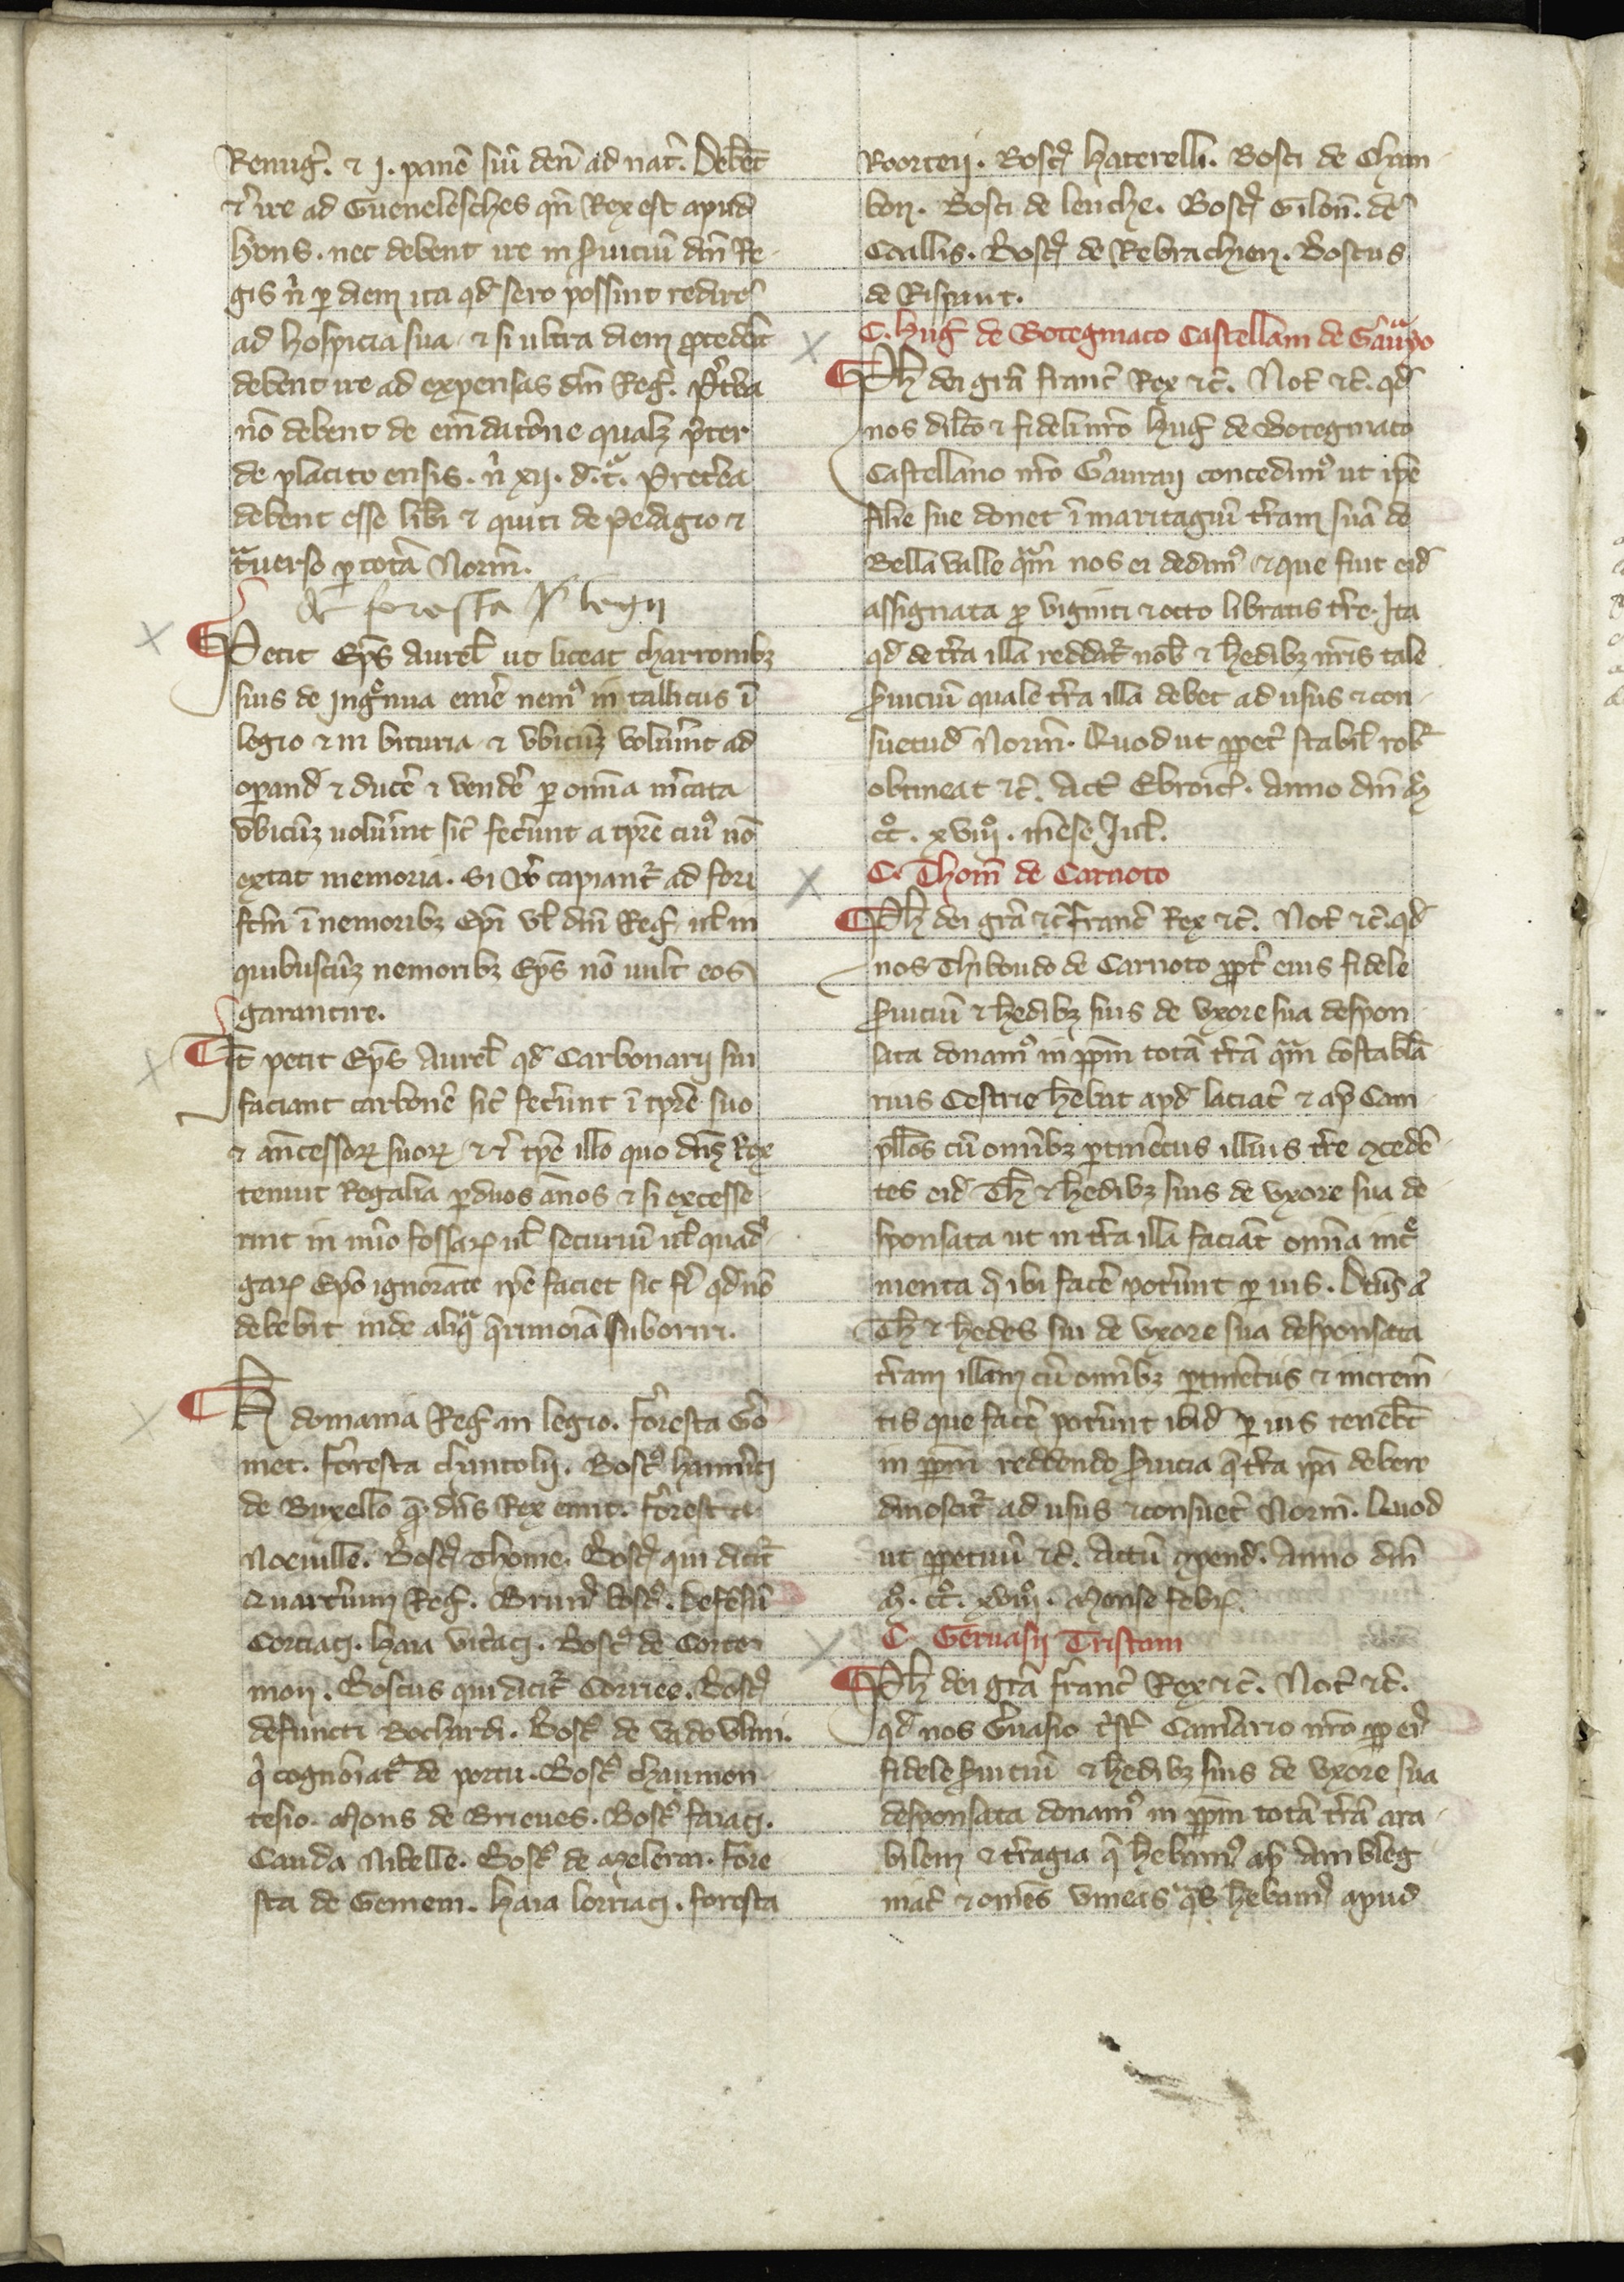 Remig̃. ⁊ j. panẽ siñ deñ ad nat̃. Debẽt
⁊ ire ad Guenelesches qñ Rex est apud
hõns. nec debent ire in seruiciũ dñi Re
gis ñ per diem ita qd̃ sero possint redire
ad hospicia sua ⁊ si ultra diem procedãt
debent ire ad expensas dñi Reg̃. Pret̃ea
nõ debent de emẽdatõne qualz preter
de placito ensis. ñ xij. d. t̃. Preterea
debent esse lib̃i ⁊ quiti de pedagio ⁊
trauerso per totã Norm̃.
de foresta legij
Petit Ep̃s Aurel̃ ut liceat charronibz
suis de Ingẽnua emẽ nemꝰ in taillicus ĩ
legio ⁊ in bituria ⁊ vbicũz voluerint ad
operand̃ ⁊ ducẽ ⁊ vendẽ per om̃ia mercata
vbicũz voluerint sic̃ fecerunt a tp̃re cuiꝰ nõ
extat memoria. Si v̊ capiant̃ ad foris
fc̃m ĩ nemoribz Ep̃i vl̃ dñi Reg̃ ul̃ in
quibuscũz nemoribz Ep̃s nõ uult eos
garantire.
It̃ petit Ep̃s Aurel̃ qd̃ Carbonarij sui
faciant carbonẽ sic̃ fecerunt ĩ tp̃re suo
⁊ añcessoꝝ suoꝝ ⁊ ĩ tp̃e illo quo dñs Rex
tenuit Regalia per duos ãnos ⁊ si excesse
rint in nũo fossaꝝ ul̃ securiũ ul̃ quad̃
gaꝝ Ep̃o ignorãte ip̃e faciet sic fi qd̃ nõ
debebit inde aliq̃ querimoĩa suboriri.
H domania Reg̃ in legio. foresta Go
met. foresta Cuntolij. Boscꝰ haimerici
de Buxello quẽ dñs Rex emit. foresta
Noeuille. Boscꝰ Thome. Boscꝰ qui dicit̃
Quarterium Reg̃. Brunꝰ boscꝰ. defẽsũ
Corciaci. haia vitraci. Boscꝰ de Corte
mon. Boscus qui dicit̃ Corriee. Boscꝰ
defuncti Bochardi. Boscꝰ de vado vlmi.
qi cognoĩat̃ de portu. Boscꝰ chaumon
tesio. Mons de Brieues. Boscꝰ faiaci.
Cauda Nibelle. Boscꝰ de melerai. fore
sta de Gemem. haia lorriaci. foresta
Roorteij. Boscꝰ haterelli. Bosci de Cham
bon. Bosci de leuche. Boscꝰ Gilon̄. de
Callis. Boscꝰ de Rebrachien. Boscus
de Rispant.
C. hug̃ de Botegniaco Castellani de Grauio
Ph dei grã franc̃ Rex ⁊c̃. Not̃ ⁊c̃. qd̃
nos dilc̃o ⁊ fideli nr̃o hug̃ de Botegniaco
Castellano nr̃o Grauraij concedimꝰ ut ip̃e
filie sue donet ĩ maritagiũ t̃ram suã de
Bella valle quam̃ nos ei dedimꝰ ⁊ que fuit eid̃
assignata pro viginti ⁊ octo libratis tr̃e. Ita
qd̃ de tr̃a illa reddãt nob̃ ⁊ hedibz nr̃is tale
seruiciũ quale tr̃a illa debet ad usus ⁊ con
suetud̃ Norm̃. Quod ut ppet̃ stabil̃ rob̃
obtineat ⁊c̃. Act̃ Ebroic̃. Anno dñi M̊
cc̊. xviij̊. mẽse Jul̃.
C. Thom̃ de Carnoto
Ph dei grã ⁊c̃ franc̃ Rex ⁊c̃. Not̃ ⁊c̃. qd̃
nos Thiboudo de Carnoto ppt̃ eius fidele
seruiciũ ⁊ hedibz suis de vxore sua despon
sata donamꝰ in ppm̃ totã tr̃ã quam̃ cõstabla
rius Cestrie hebat apd̃ laciac̃ ⁊ ap̃ Cam
pllos cũ om̃ibz pertinẽciis illius tr̃e cõcedẽ
tes eid̃ Th ⁊ hedibz suis de vxore sua de
sponsata ut in tr̃a illa faciãt om̃ia incre
menta q̃ ibi facẽ poterunt per ius. Dc̃us ẽ
Th ⁊ hedes sui de vxore sua desponsata
tr̃am illam cũ om̃ibz pertinẽciis ⁊ increm̃
tis que facẽ poterunt ibid̃ per ius teneb̃t
in ppm̃ reddendo seruicia q̃ tr̃a ip̃a debere
dinoscit̃ ad usus ⁊ consuet̃ Norm̃. Quod
ut ppetuũ ⁊c̃. Actũ Spend̃. Anno dñi
M̊. cc̊. xviij̊. Mense febr̃.
C. Geruasij Tristani
Ph dei grã franc̃ Rex ⁊c̃. Not̃ ⁊c̃.
qd̃ nos Geruasio t̃st̃ Camerario nr̃o pp eiꝰ
fidele seruiciũ ⁊ hedibz suis de vxore sua
desponsata donamꝰ in ppm̃ totã tr̃ã ara
bilem ⁊ t̃ragia q̃ hebamꝰ ap̃ Ambleg
niac̃ ⁊ om̃es vineas q̃s hebamꝰ apud